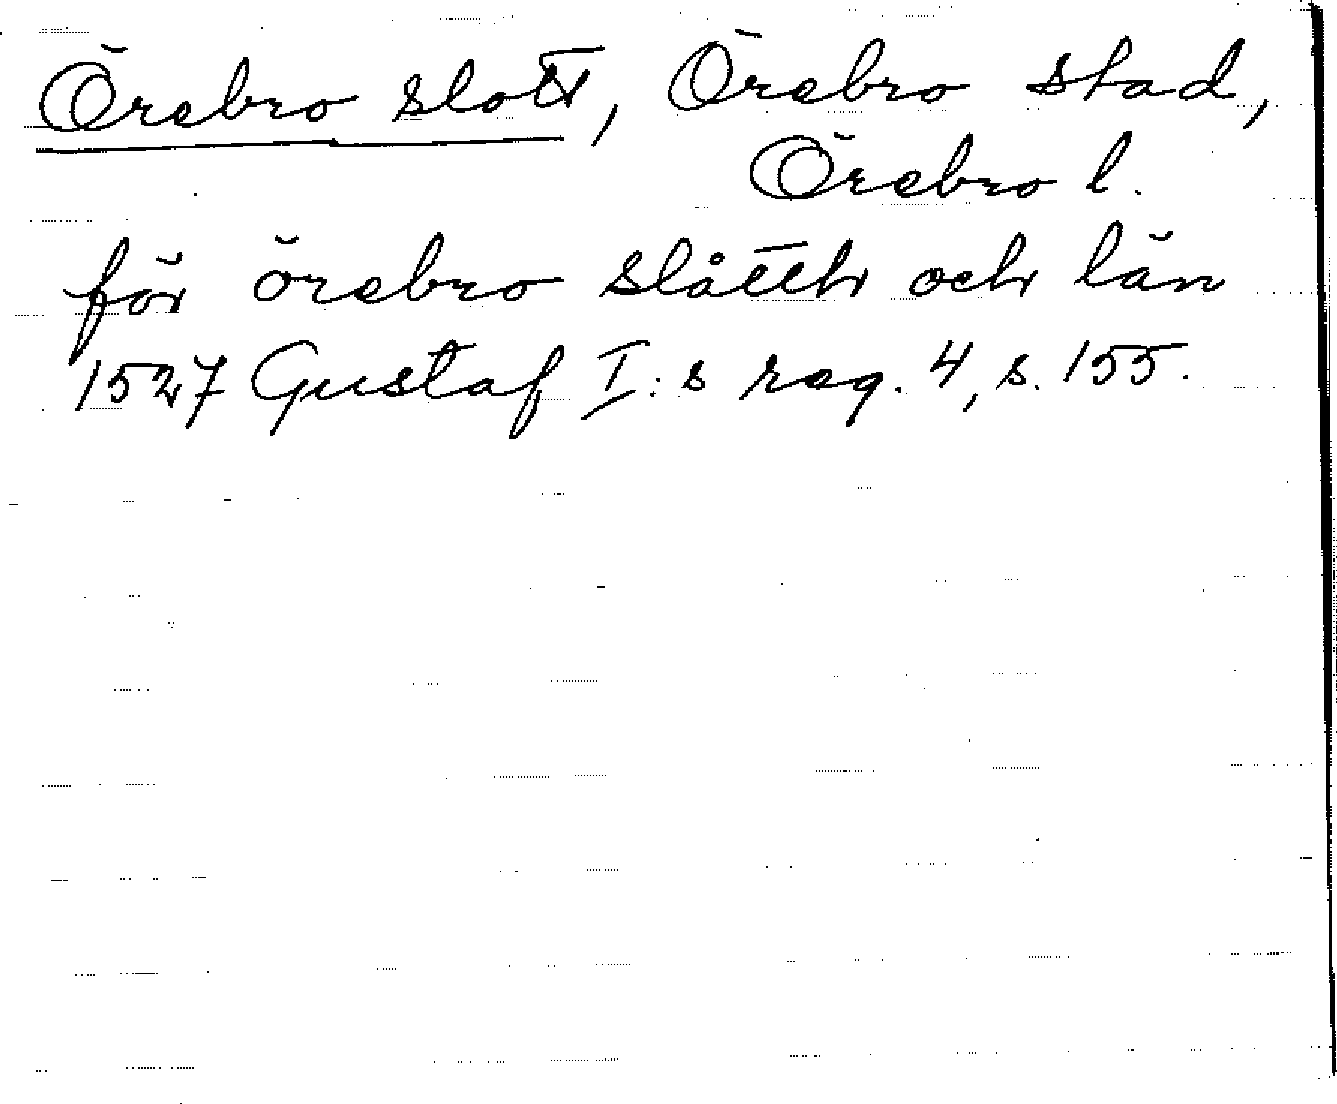 Örebro slott, Örebro stad,
Örebro l.
för örebro slåtth och län
1527 Gustaf I:s reg. 4, s. 155.